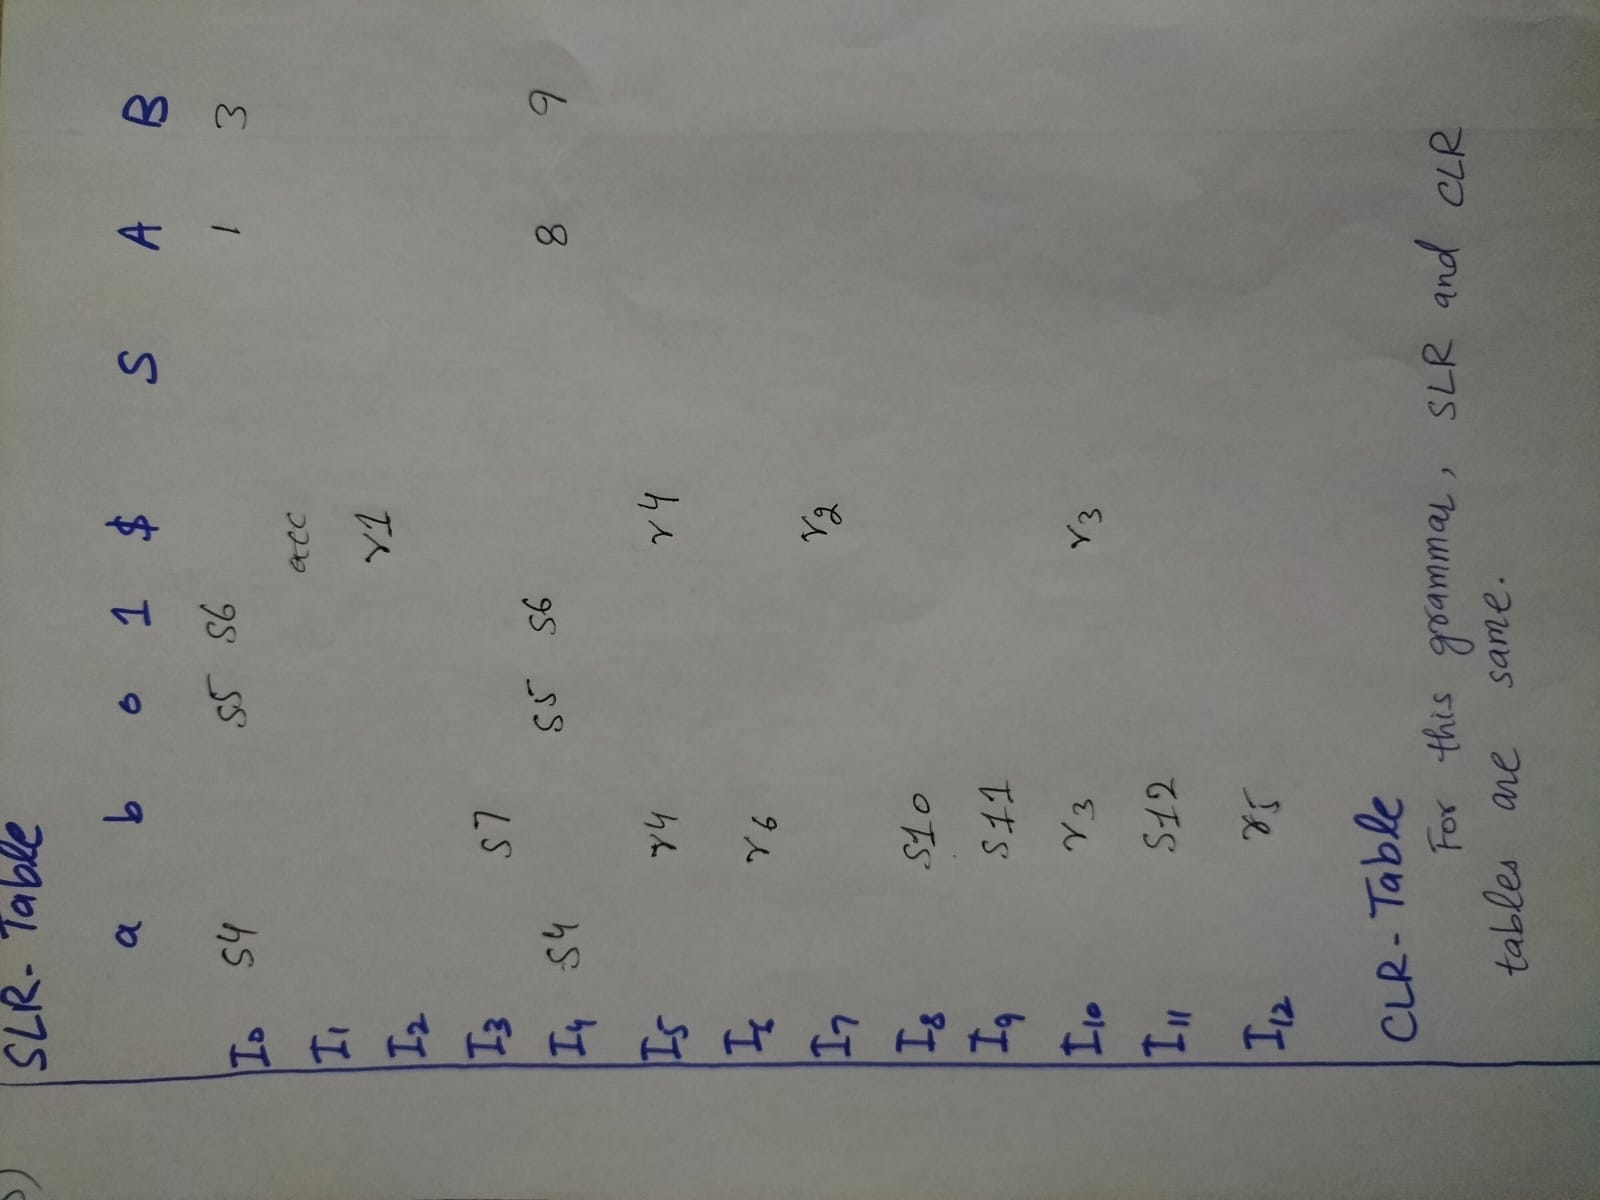 SLR- Table
a b 0 1 $ S A B
I0 S4 S5 S6 1 3
I1 acc
I2 r1
I3 S7
I4 S4 S5 S6 8 9
I5 r4 r4
I6 r6
I7 r2
I8 S10
I9 S11
I10 r3 r3
I11 S12
I12 r5
CLR- Table
For this grammar, SLR and CLR
tables are same.